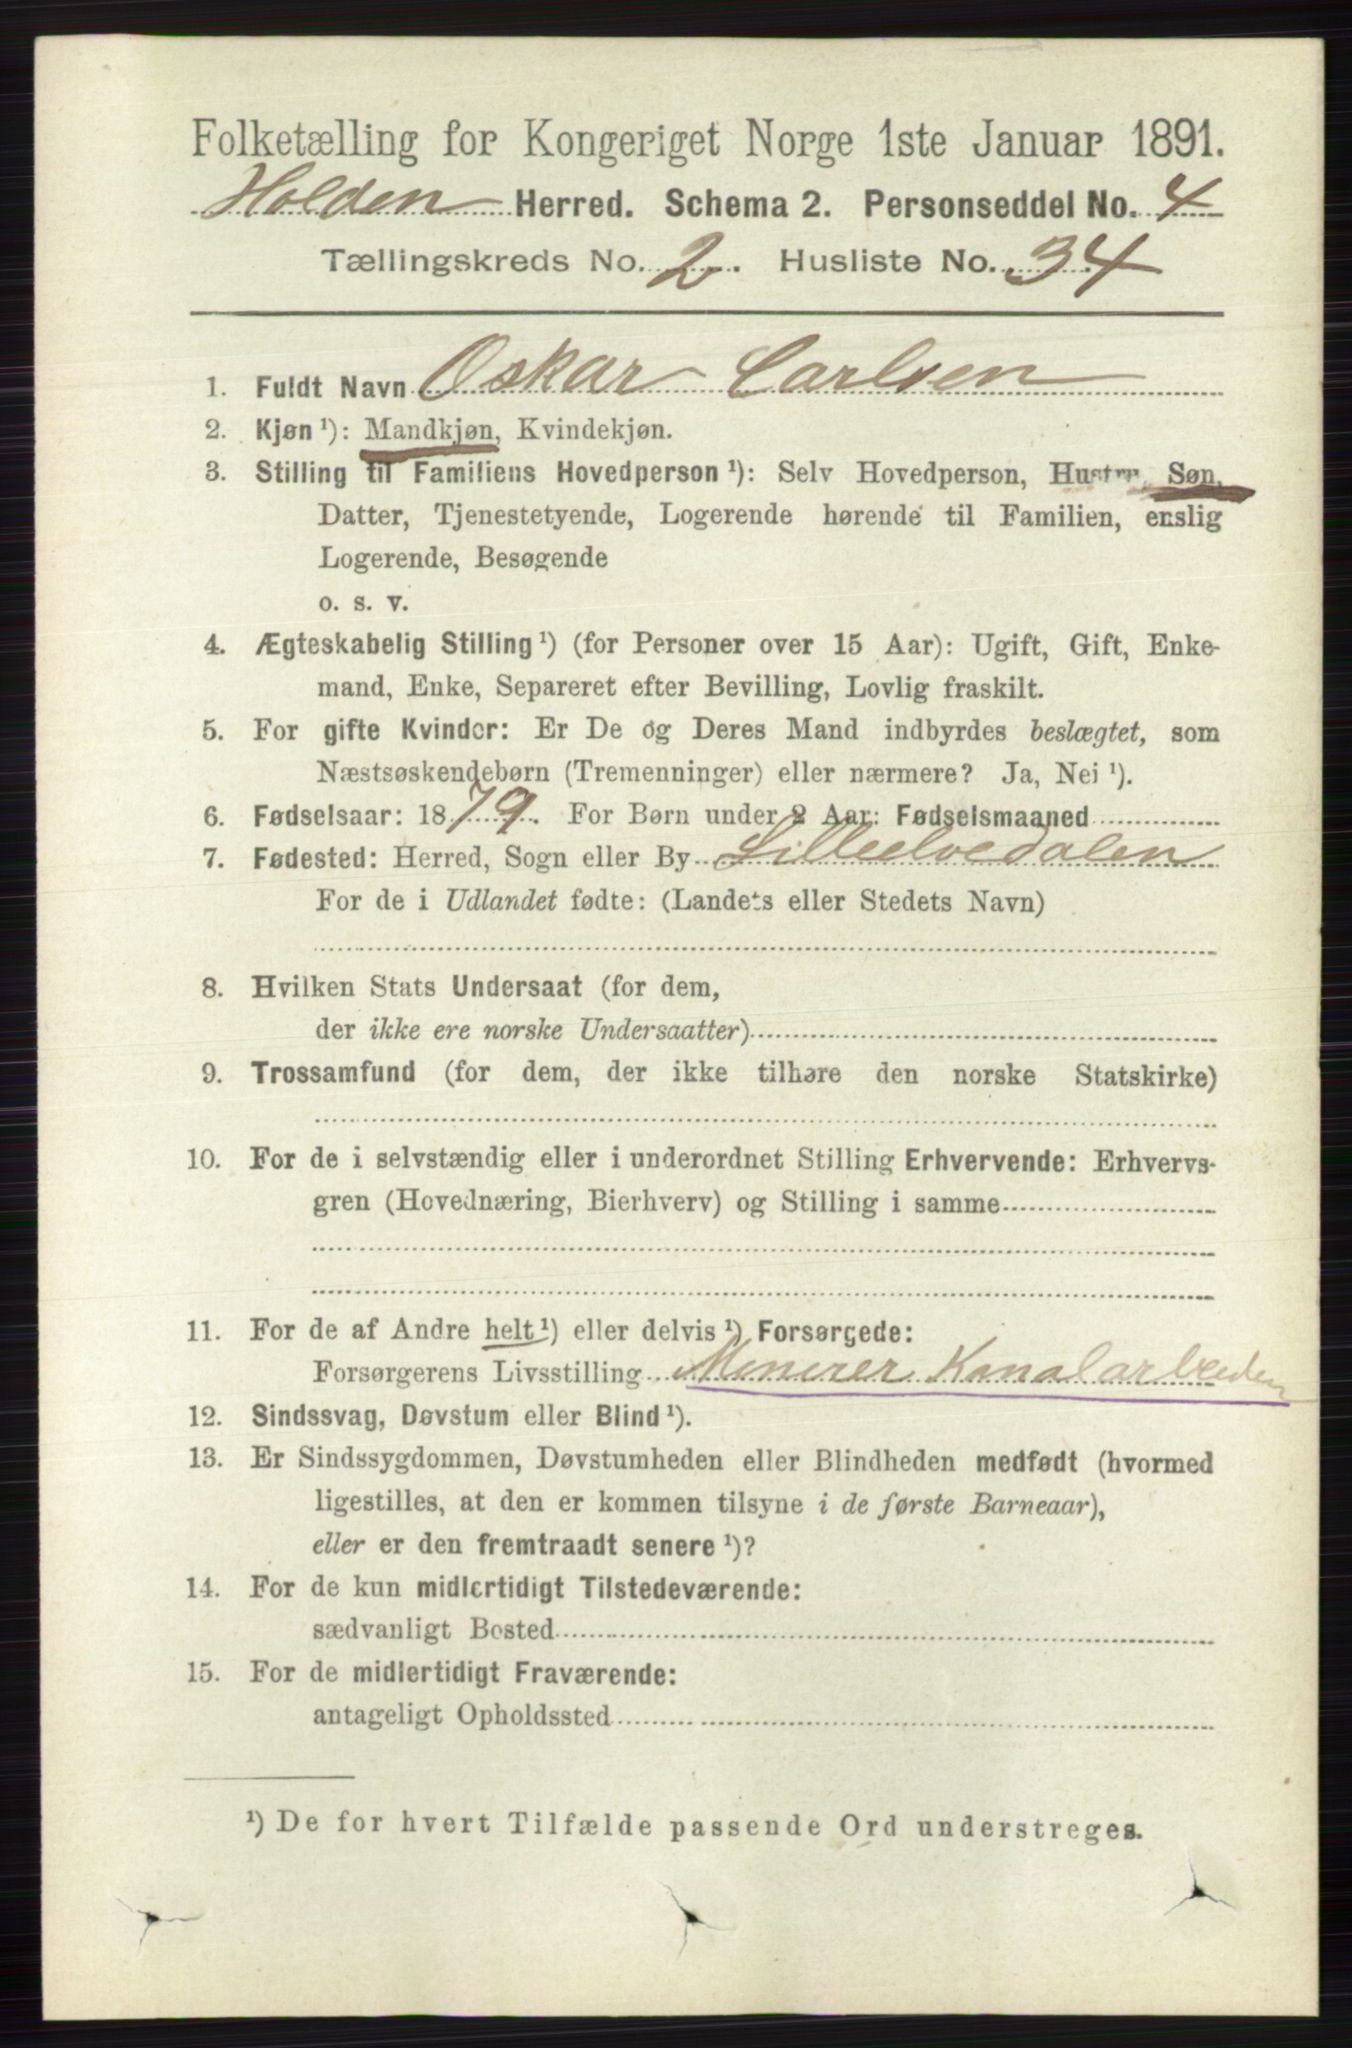 Folketælling for Kongeriget Norge 1ste Januar 1891.
Holden Herred. Schema 2. Personseddel No. 4
Tællingskreds No. 2. Husliste No. 34
1. Fuldt Navn Oskar Carlsen
2. Kjøn¹): Mandkjøn, Kvindekjøn.
3. Stilling til Familiens Hovedperson¹): Selv Hovedperson, Hustru, Søn,
Datter, Tjenestetyende, Logerende hørende til Familien, enslig
Logerende, Besøgende
o. s. v.
4. Ægteskabelig Stilling¹) (for Personer over 15 Aar): Ugift, Gift, Enke-
mand, Enke, Separeret efter Bevilling, Lovlig fraskilt.
5. For gifte Kvinder: Er De og Deres Mand indbyrdes beslægtet, som
Næstsøskendebørn (Tremenninger) eller nærmere? Ja, Nei¹).
6. Fødselsaar: 1879. For Børn under 2 Aar: Fødselsmaaned
7. Fødested: Herred, Sogn eller By Lilleelvedalen
For de i Udlandet fødte: (Landets eller Stedets Navn)
8. Hvilken Stats Undersaat (for dem,
der ikke ere norske Undersaatter)
9. Trossamfund (for dem, der ikke tilhøre den norske Statskirke)
10. For de i selvstændig eller i underordnet Stilling Erhvervende: Erhvervs-
gren (Hovednæring, Bierhverv) og Stilling i samme
11. For de af Andre helt¹) eller delvis¹) Forsørgede:
Forsørgerens Livsstilling Minerer Kanalarbeiden
12. Sindssvag, Døvstum eller Blind¹).
13. Er Sindssygdommen, Døvstumheden eller Blindheden medfødt (hvormed
ligestilles, at den er kommen tilsyne i de første Barneaar),
eller er den fremtraadt senere¹)?
14. For de kun midlertidigt Tilstedeværende:
sædvanligt Bosted
15. For de midlertidigt Fraværende:
antageligt Opholdssted
¹) De for hvert Tilfælde passende Ord understreges.